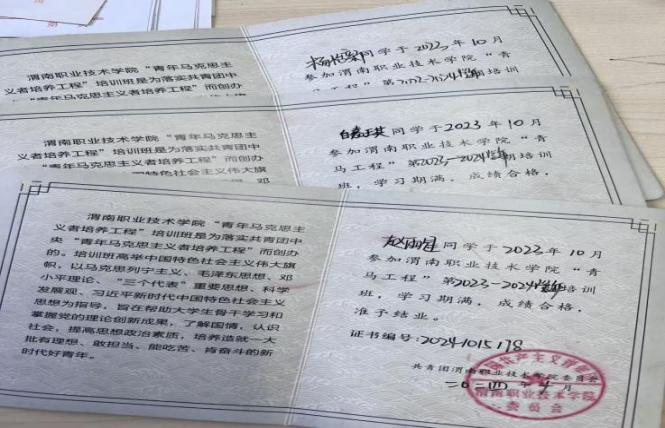 渭南职业技术学院“青年马克思主
义者培养工程”培训班是为落实共青团中
央“青年马克思主义者培养工程”而创办
同学于2023年10月
参加渭南职业技术学院“青
马工程”第
培训
渭南职业技术学院“青年马克思主
义者培养工程”培训班是为落实共青团中
央“青年马克思主义者培养工程”而创办
的。培训班高举中国特色社会主义伟大旗
同学于2023年10月
参加渭南职业技术学院“青
马工程”第2023-2024学年期培训
班，学习期满，成绩合格，
渭南职业技术学院“青年马克思主
义者培养工程”培训班是为落实共青团中
央“青年马克思主义者培养工程”而创办
的。培训班高举中国特色社会主义伟大旗
帜，以马克思列宁主义、毛泽东思想、邓
小平理论、“三个代表”重要思想、科学
发展观、习近平新时代中国特色社会主义
思想为指导，旨在帮助大学生骨干学习和
掌握党的理论创新成果，了解国情，认识
社会，提高思想政治素质，培养造就一大
批有理想、敢担当、能吃苦、肯奋斗的新
时代好青年。
同学于2023年10月
参加渭南职业技术学院“青
马工程”第2023-2024学年期培训
班，学习期满，成绩合格，
准予结业。
证书编号:20241015118
共青团渭南职业技术学院委员会
二〇二四年 月
渭南职业技术学院
委员会